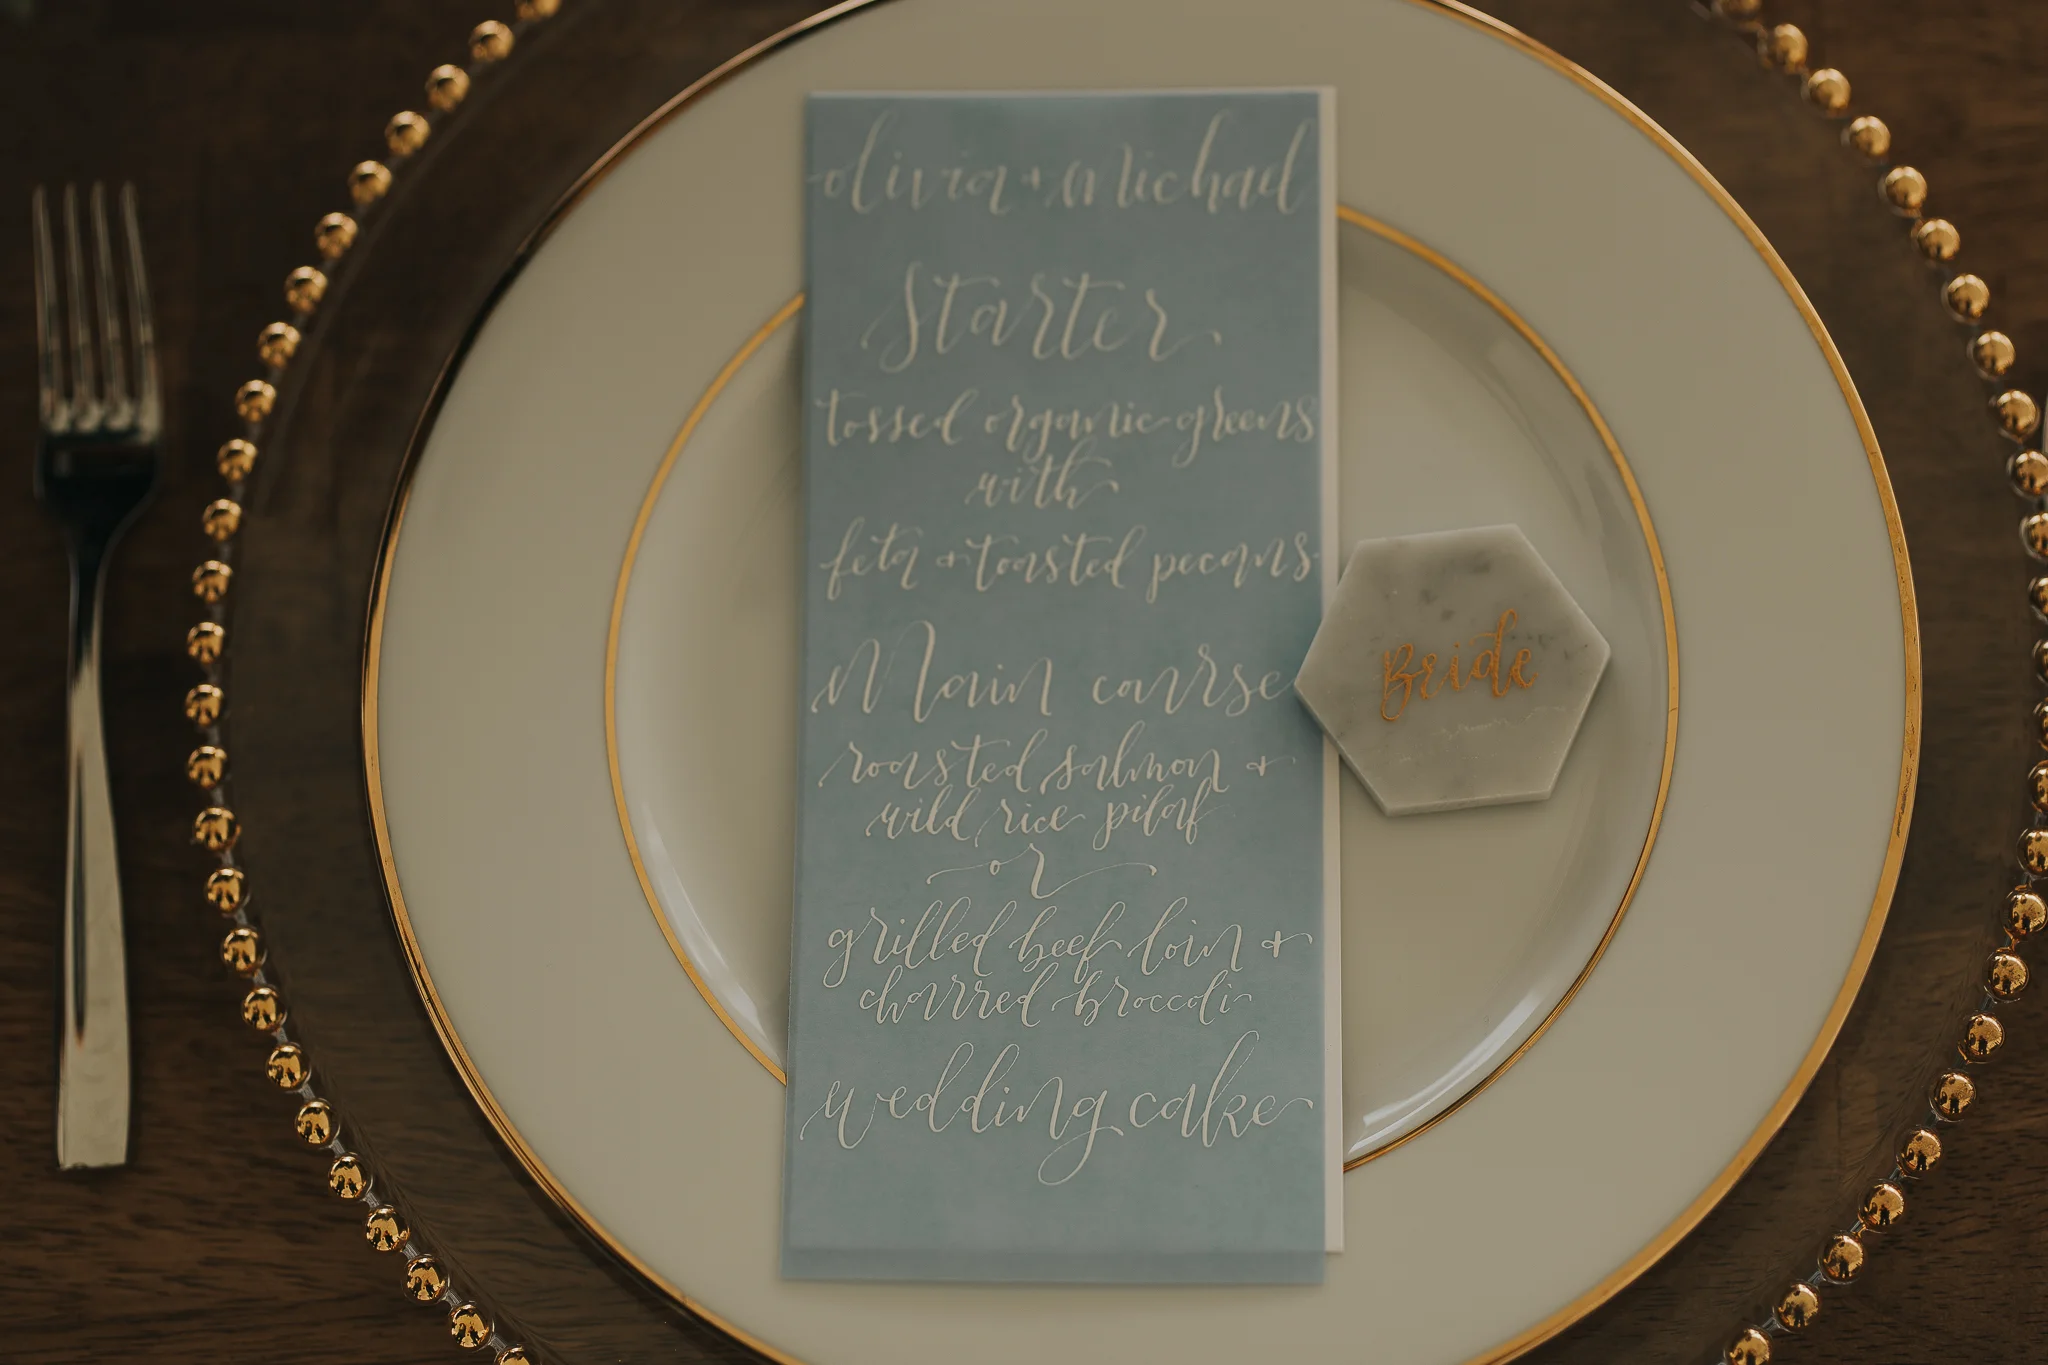 olivia + Michael
Starter
tossed organic greens
with
feta + toasted pecans
Main course
roasted salmon +
wild rice pilaf
or
grilled beef loin +
charred broccoli
wedding cake
Bride